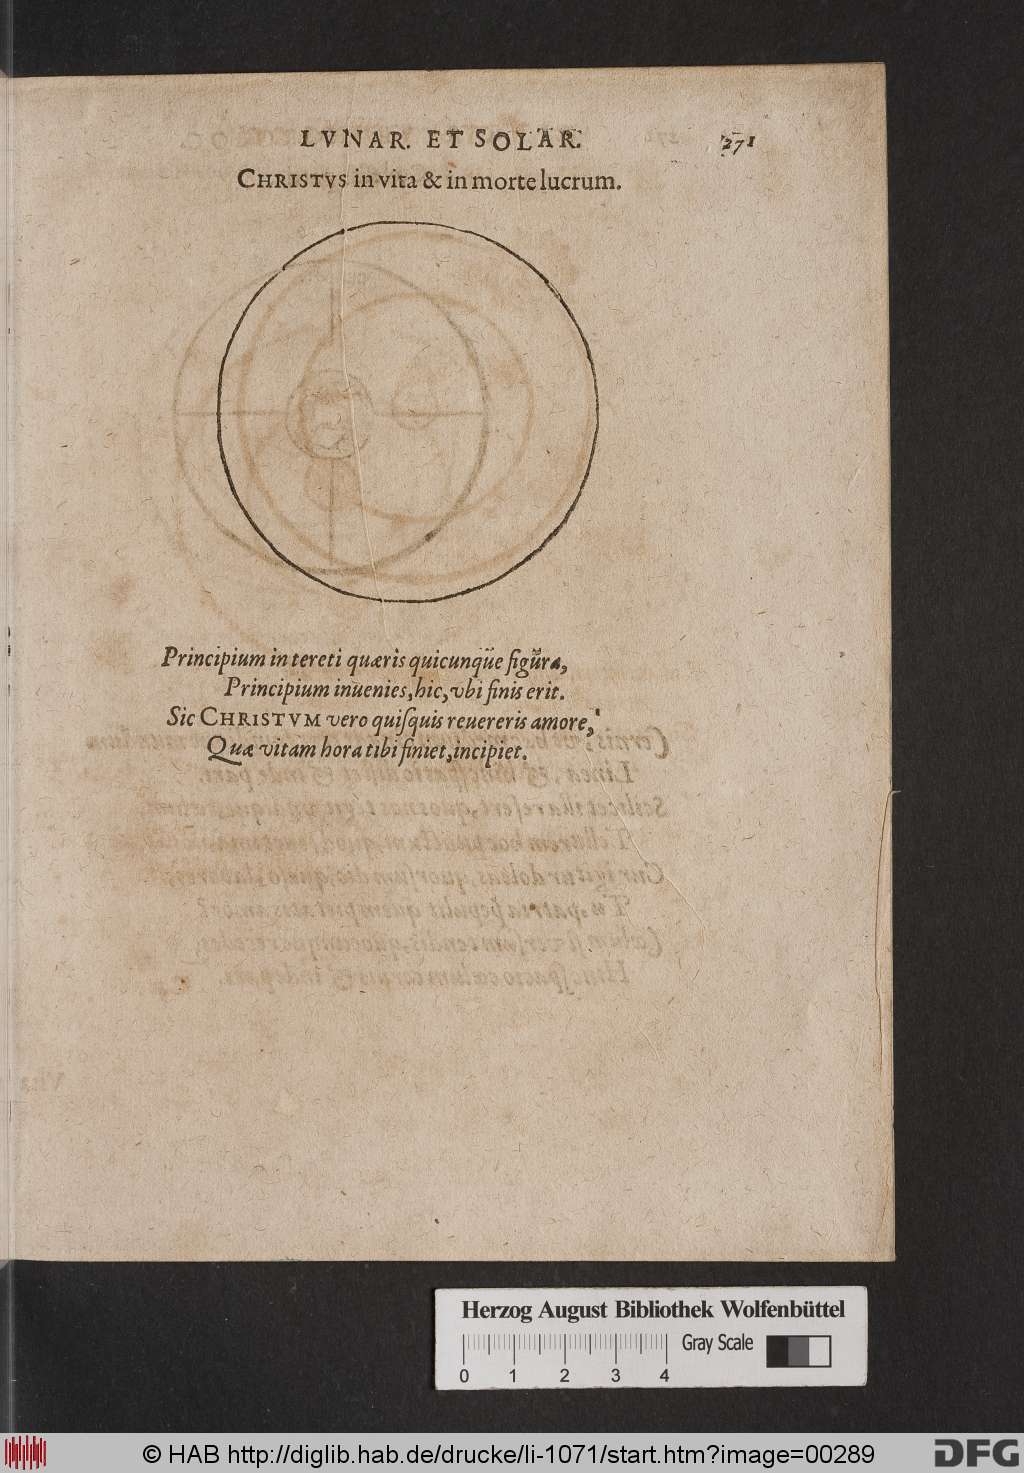 LVNAR. ET SOLAR. 271
CHRISTVS in vita & in morte lucrum.
Principium in tereti quæris quicunque figura,
Principium inuenies, hic, vbi finis erit.
Sic CHRISTVM vero quiſquis reuereris amore,
Quæ vitam hora tibi finiet, incipiet.
Herzog August Bibliothek Wolfenbüttel
Gray Scale
0 1 2 3 4
© HAB http://diglib.hab.de/drucke/li-1071/start.htm?image=00289
DFG